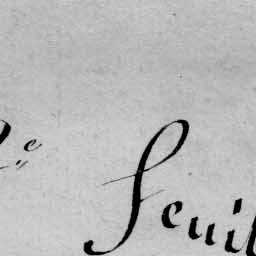 2e Feuil